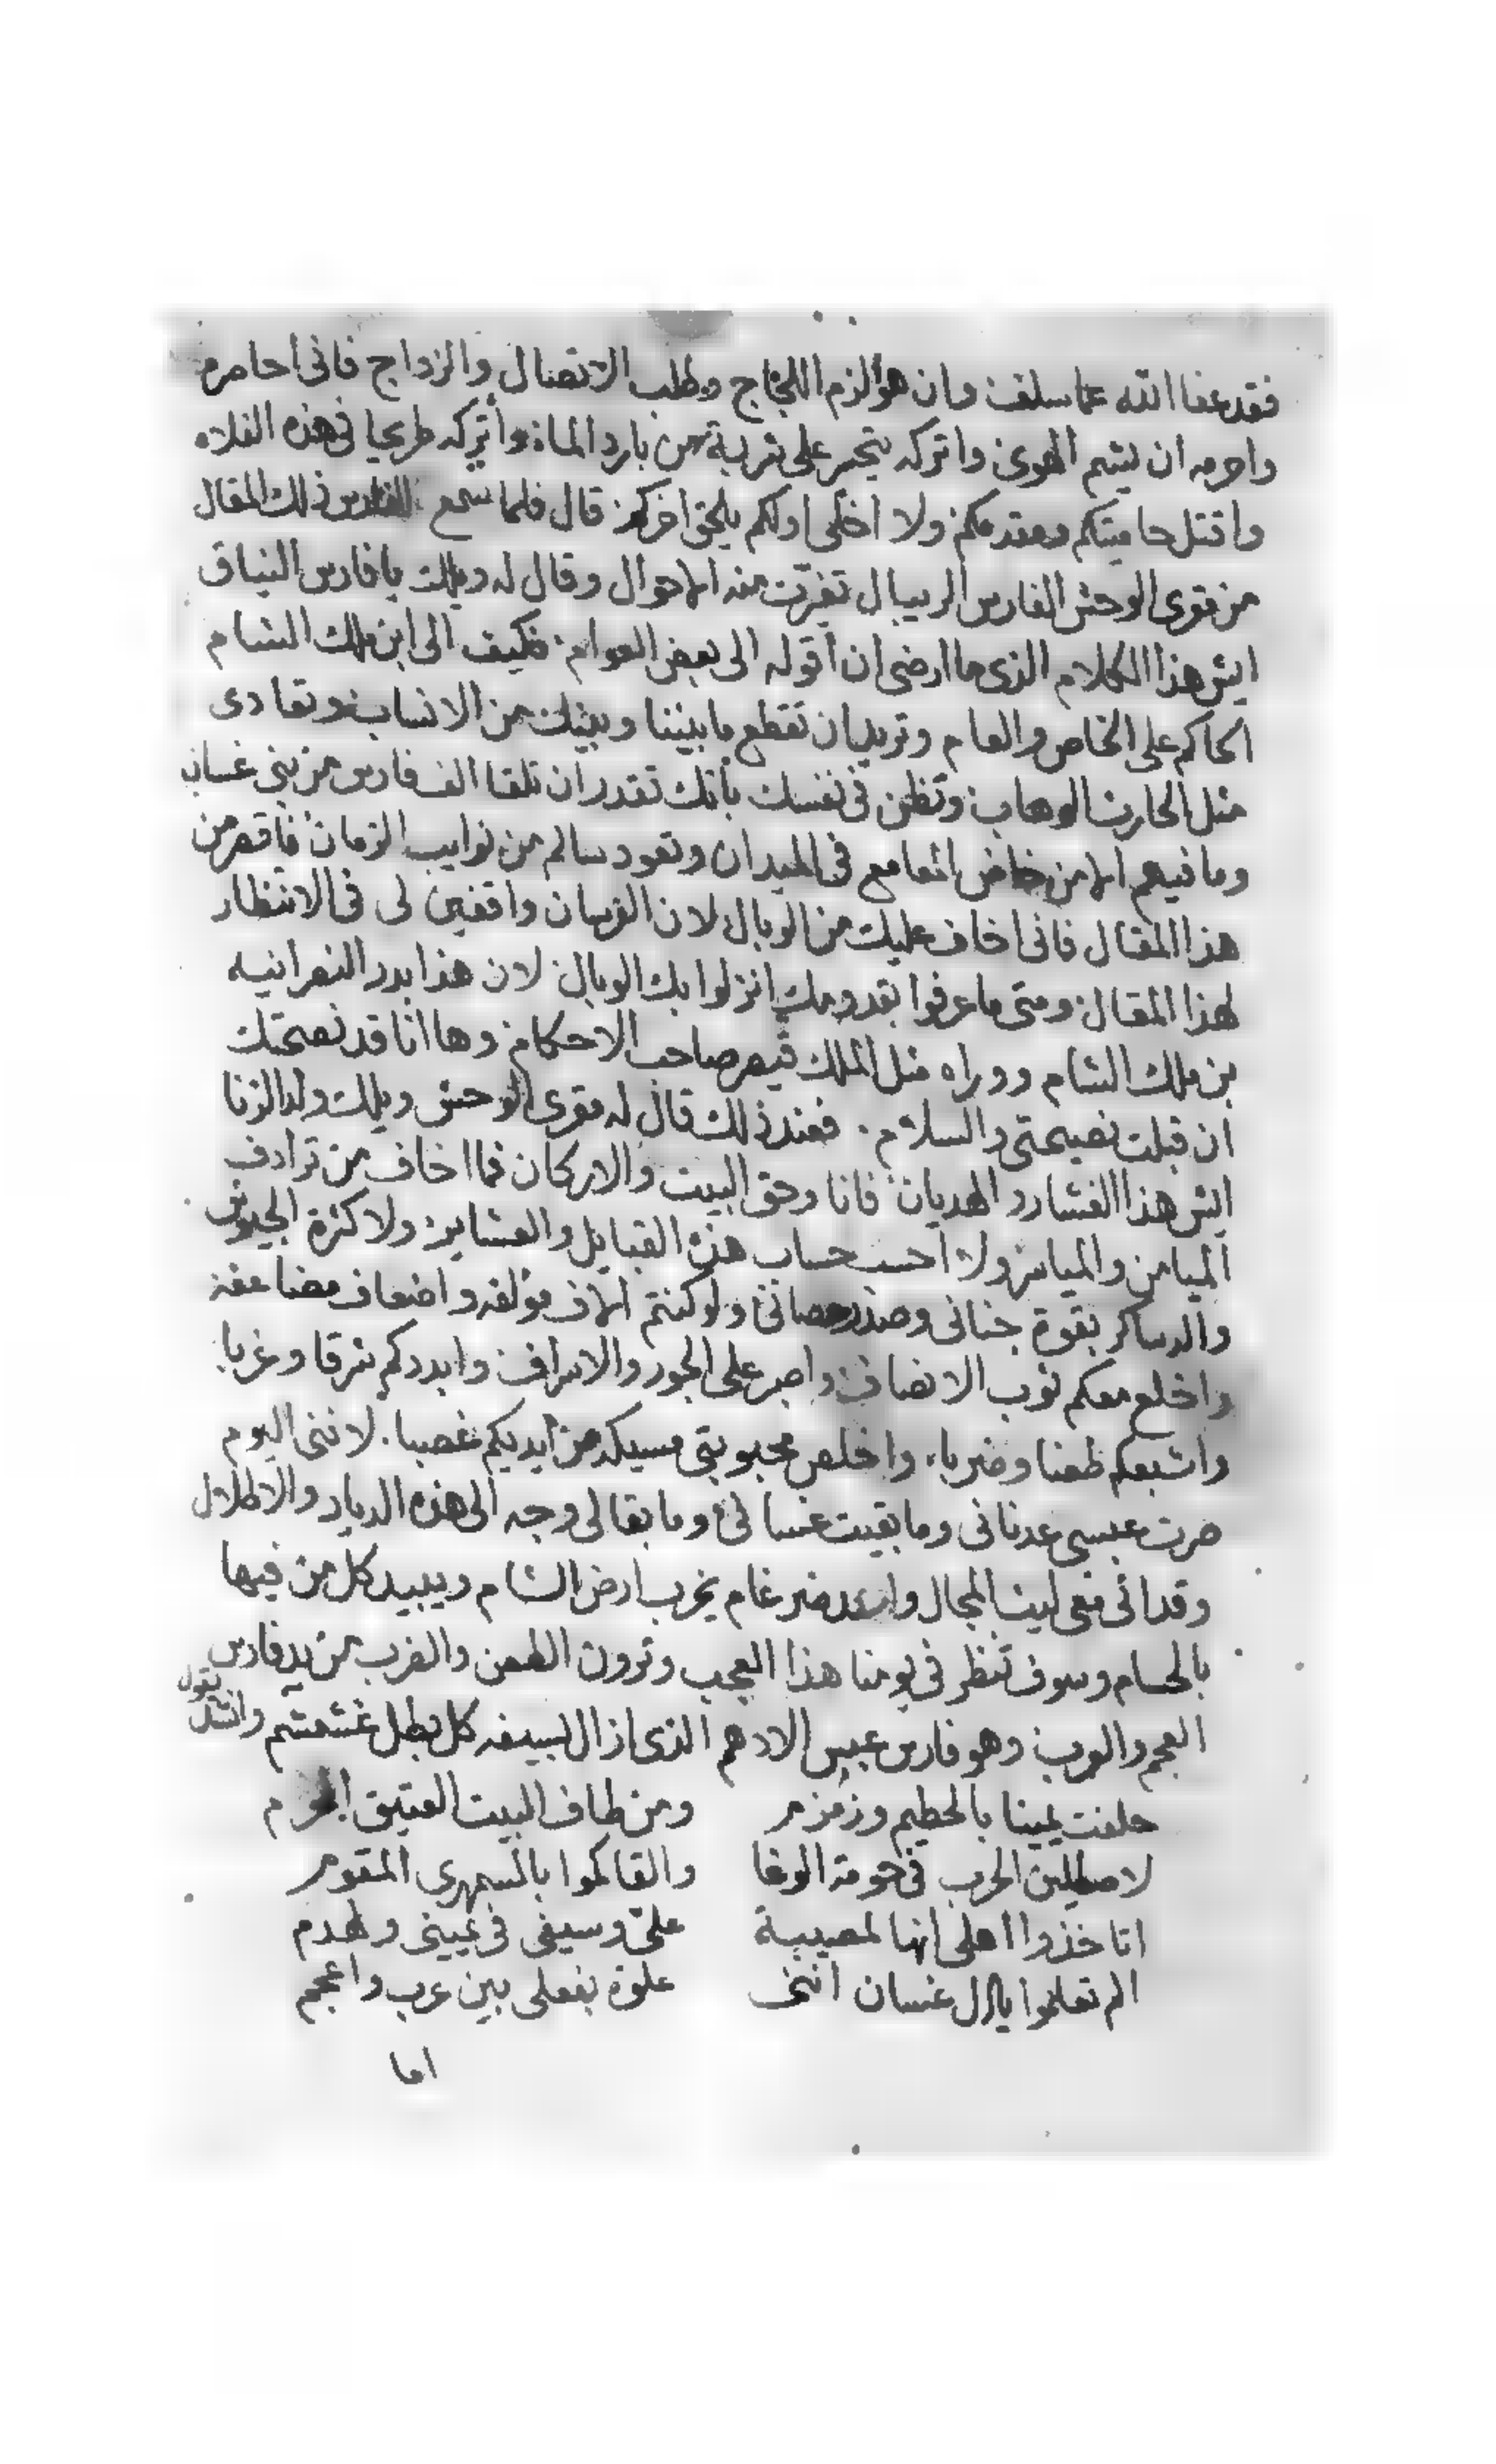 فقد عفا الله عما سلف وان هو الزم اللجاج وطلب الاتصال والزداج فانى احا مره
واحرمه ان يشم الهوى واتركه يتحسر على شربة من بارد الماء وأتركه طريحا فى هذه الفلاه
واقتل حاميتكم ومقدمكم ولا اخلى اولكم يلحق اخركم قال فلما سمع الفارس ذلك المقال
من مقرى الوحش الفارس الريبال تغيرت منه الاحوال وقال له ويلك يا فارس النياق
ايش هذا الكلام الذى ما ارضى ان اقوله الى بعض العوام فكيف الى ابن ملك الشام
الحاكم على الخاص والعام وتريد ان تقطع ما بيننا وبينك من الانساب وتعادى
مثل الحارث الوهاب وتظن فى نفسك بأنك تقدر ان تلقا الف فارس من بنى غسان
وما فيهم الا من خاض المعامع فى الميدان وتعود سالم من نوايب الزمان فاقصر من
هذا المقال فانى اخاف عليك من الوبال لان الفرسان واقفين لى فى الانتظار
لهذا المقال ومتى ما عرفوا بقدومك انزلوا بك الوبال لان هذا بدر النصرانيه
بن ملك الشام ووراه مثل الملك قيصر صاحب الاحكام وها انا قد نصحتك
ان قبلت نصيحتى والسلام . فعند ذلك قال له مقرى الوحش ويلك ولد الزنا
ايش هذا الفشار والهديان فانا وحق البيت والاركان فما اخاف من ترادف
الميامن والمياسر ولا احسب حساب هذه القبايل والعشاير ولا كثرة الجيوش
والدساكر بقوة جنانى وصدر حصانى ولو كنتم الاف مؤلفه واضعاف مضاعفه
واخلع معكم ثوب الانصاف واصبر على الجور والاسراف وابددكم شرقا وغربا
واشبعكم طعنا وضربا، واخلص محبوبتى مسيكه من ايديكم غصبا . لاننى اليوم
صرت عبسى عدنانى وما بقيت غسانى وما بقا لى وجه الى هذه الديار والاطلال
وقد اتى معى ليث المجال واسد ضرغام يخرب ارض الشام ويبيد كل من فيها
بالحسام وسوف تنظر فى يومنا هذا العجب وترون الطعن والضرب من يد فارس
العجم والعرب وهو فارس عبس الادهم الذى ازال بسيفه كل بطل غشمشم وانشد يقول
حلفت يمينا بالحطيم وزمزم ومن طاف البيت العتيق المحرم
لاصطلين الحرب فى حومة الوغا والقاكموا بالسمهرى المقوم
اتاخذوا اهلى انها لمصيبة علىّ وسيفى فى يمينى ولهدم
الم تعلموا يا ال غسان اننى علوة بفعلى بين عرب واعجم
اما